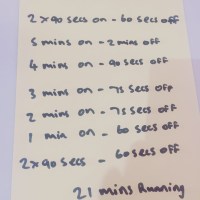 2 x 90 secs on - 60 secs off
5 mins on - 2 mins off
4 mins on - 90 secs off
3 mins on - 75 secs off
2 mins on - 75 secs off
1 min on - 60 secs off
2x90 secs - 60 secs off
21 mins Running